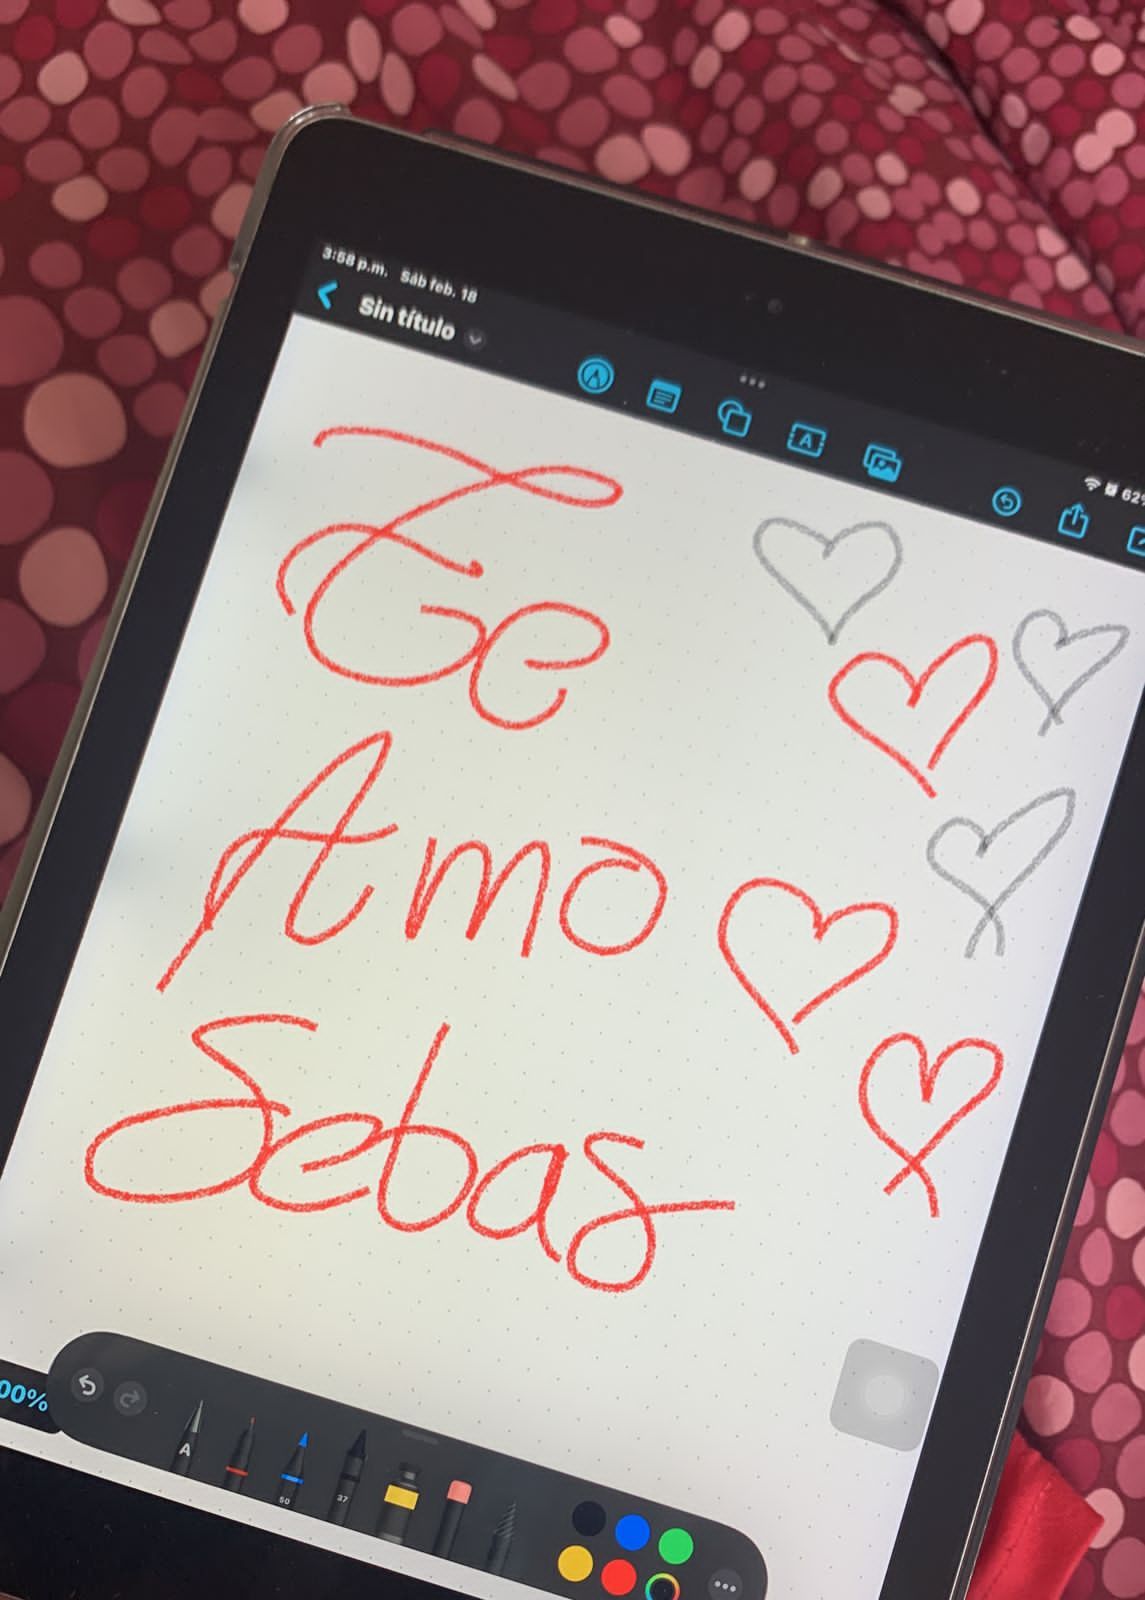 3:58 p.m. Sáb feb. 18
62%
Sin título
A
Te
Amo
Sebas
00%
A
50
37